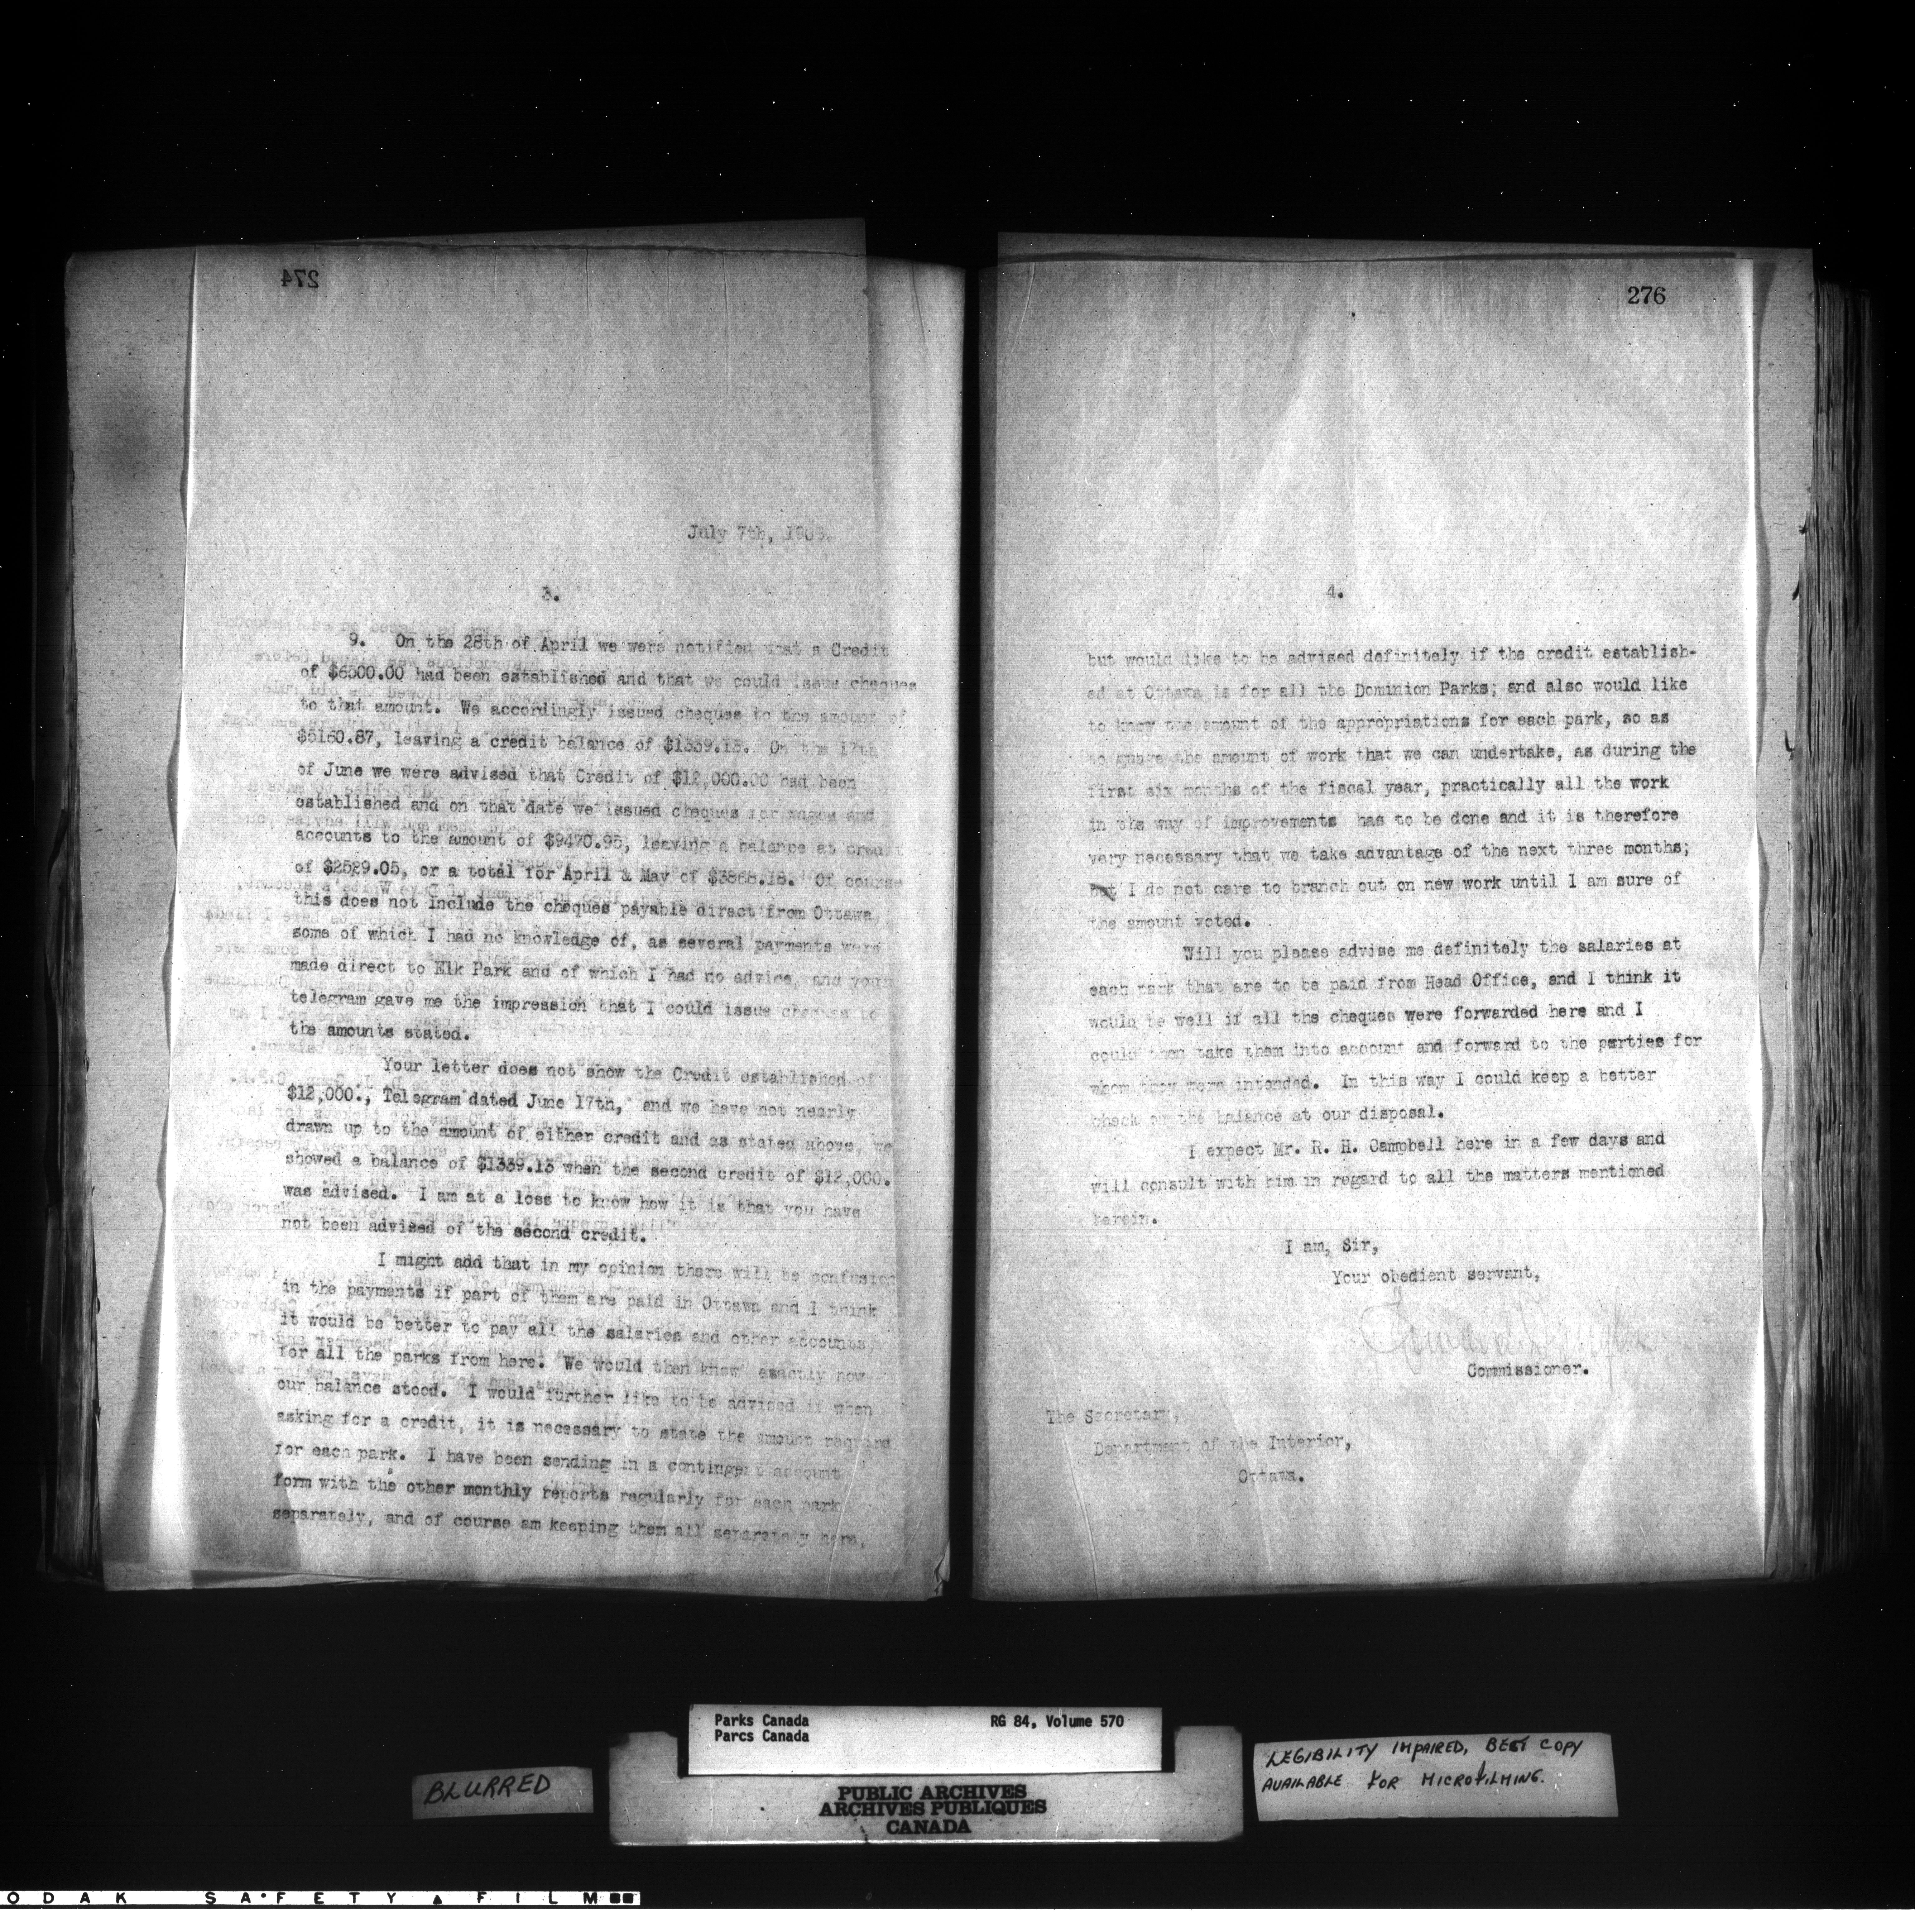 274
July 7th, 190
3.
9. On the 28th of April we were notified that a Credit
of $6500.00 had been established and that we could issue cheques
to that amount. We accordingly issued cheques to the amount of
$5160.87, leaving a credit balance of $1339.13. On the 17th
of June we were advised that Credit of $12,000.00 had been
established and on that date we issued cheques for wages and
accounts to the amount of $9470.95, leaving a balance at credit
of $2529.05, or a total for April & May of $3868.18. Of course
this does not include the cheques payable direct from Ottawa
some of which I had no knowledge of, as several payments were
made direct to Elk Park and of which I had no advice, and your
telegram gave me the impression that I could issue cheques to
the amounts stated.
Your letter does not show the Credit established of
$12,000., Telegram dated June 17th, and we have not nearly
drawn up to the amount of either credit and as stated above, we
showed a balance of $1339.13 when the second credit of $12,000.
was advised. I am at a loss to know how it is that you have
not been advised of the second credit.
I might add that in my opinion there will be confusion
in the payments if part of them are paid in Ottawa and I think
it would be better to pay all the salaries and other accounts
for all the parks from here. We would then know exactly how
our balance stood. I would further like to be advised if when
asking for a credit, it is necessary to state the amount required
for each park. I have been sending in a contingent account
form with the other monthly reports regularly for each park
separately, and of course am keeping them all separately here,
276
4.
but would like to be advised definitely if the credit establish-
ed at Ottawa is for all the Dominion Parks; and also would like
to know the amount of the appropriations for each park, so as
to guage the amount of work that we can undertake, as during the
first six months of the fiscal year, practically all the work
in the way of improvements has to be done and it is therefore
very necessary that we take advantage of the next three months;
but I do not care to branch out on new work until I am sure of
the amount voted.
Will you please advise me definitely the salaries at
each park that are to be paid from Head Office, and I think it
would be well if all the cheques were forwarded here and I
could then take them into account and forward to the parties for
whom they were intended. In this way I could keep a better
check on the balance at our disposal.
I expect Mr. R. H. Campbell here in a few days and
will consult with him in regard to all the matters mentioned
herein.
I am, Sir,
Your obedient servant,
Commissioner.
The Secretary,
Department of the Interior,
Ottawa.
Parks Canada RG 84, Volume 570
Parcs Canada
BLURRED
PUBLIC ARCHIVES
ARCHIVES PUBLIQUES
CANADA
LEGIBILITY IMPAIRED, BEST COPY
AVAILABLE FOR MICROFILMING.
ODAK SAFETY FILM